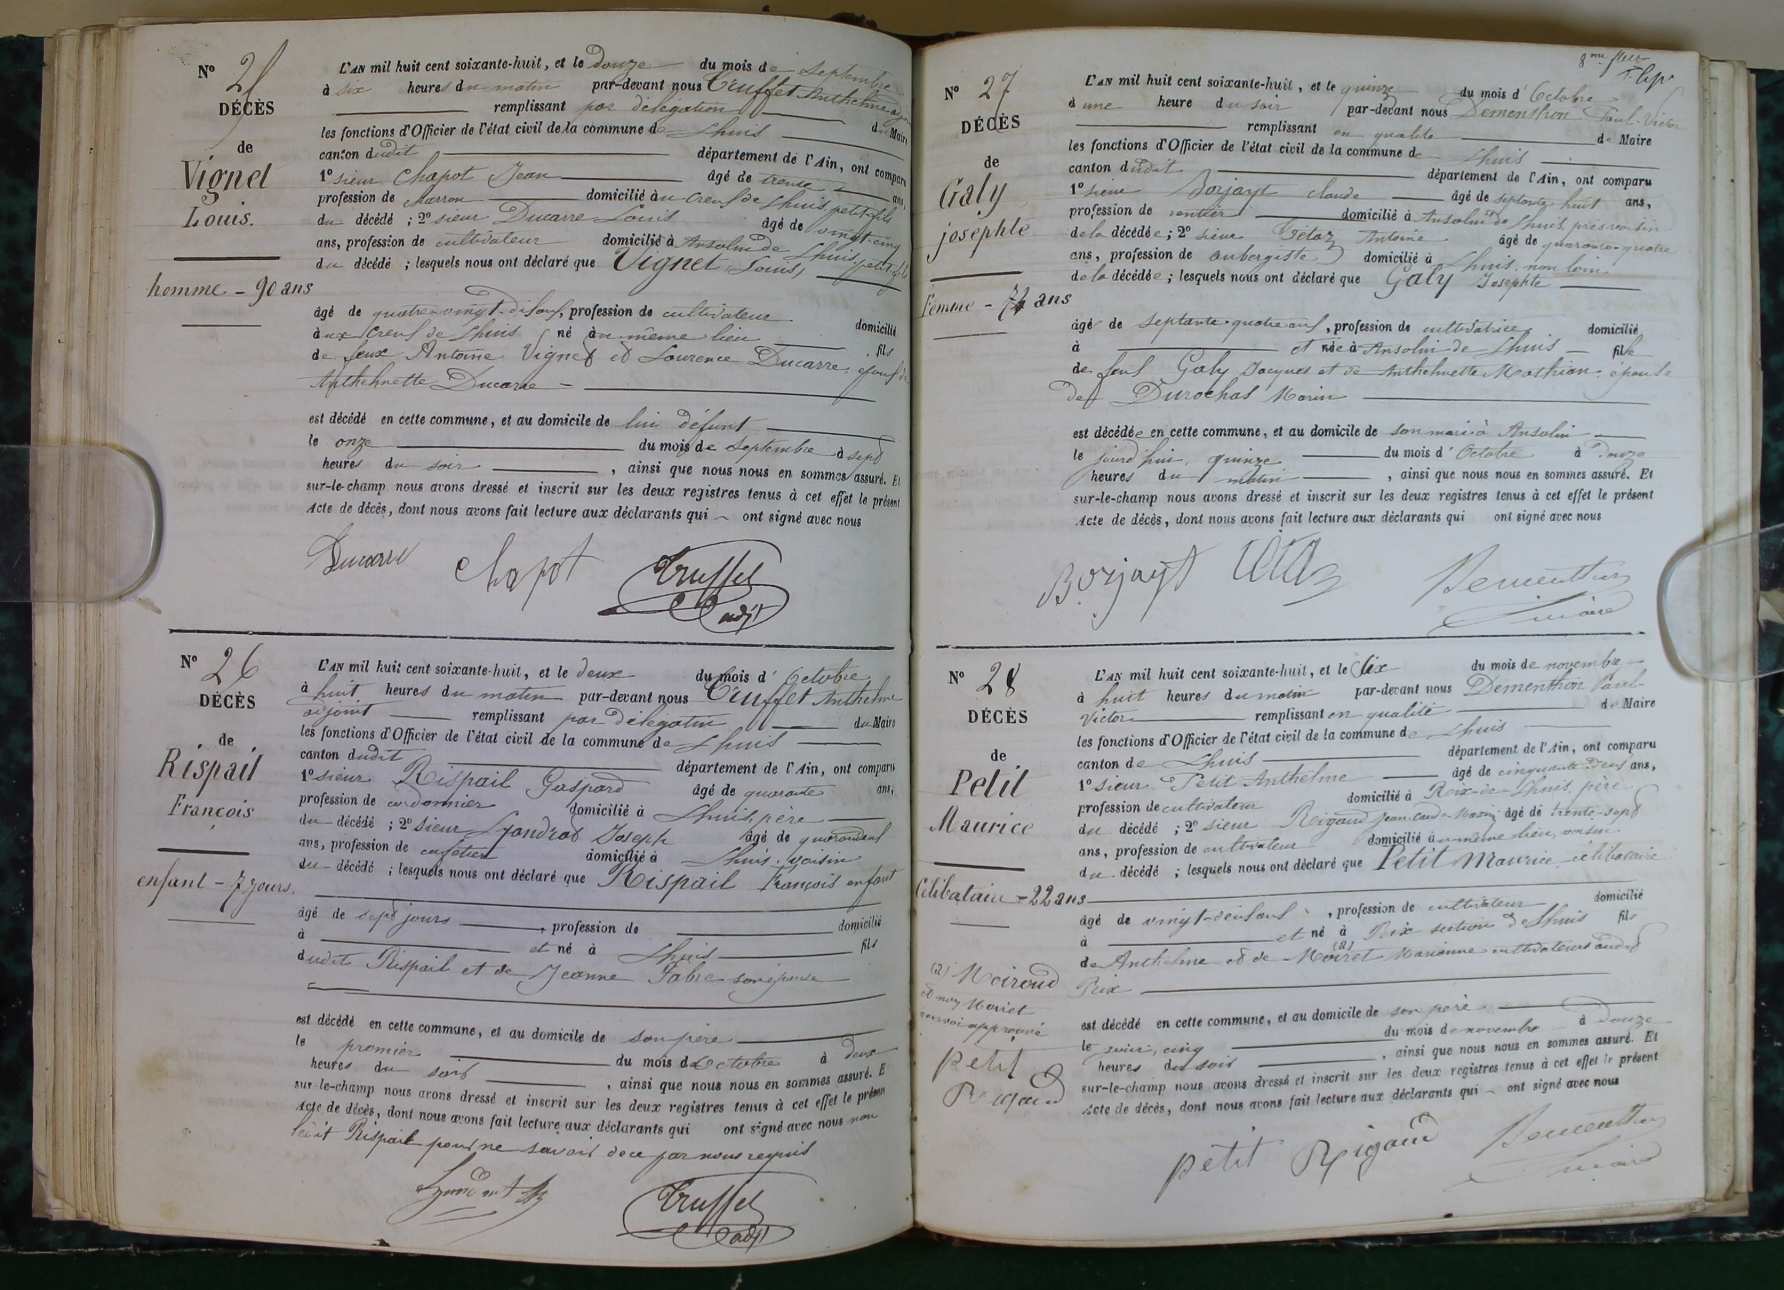 N° 25
DÉCÈS
de
Vignet
Louis.
homme - 90 ans
L'AN mil huit cent soixante-huit, et le douze du mois de septembre
à six heures du matin par-devant nous Truffet Anthelme adjoint
remplissant par délégation du Maire
les fonctions d'Officier de l'état civil de la commune de Lhuis
canton dudit département de l'Ain, ont comparu
1° sieur Chapot Jean âgé de trente ans,
profession de Marron domicilié au Creux de Lhuis petit-fils
du décédé ; 2° sieur Ducarre Louis âgé de vingt-cinq
ans, profession de cultivateur domicilié à Ansolin de Lhuis, petit-fils
du décédé ; lesquels nous ont déclaré que Vignet Louis,
âgé de quatre-vingt-dix ans, profession de cultivateur domicilié
aux Creux de Lhuis né au même lieu fils
de feux Antoine Vignet et Laurence Ducarre, époux de
Anthelmette Ducarre -
est décédé en cette commune, et au domicile de lui défunt
le onze du mois de septembre à sept
heures du soir , ainsi que nous nous en sommes assuré. Et
sur-le-champ nous avons dressé et inscrit sur les deux registres tenus à cet effet le présent
Acte de décès, dont nous avons fait lecture aux déclarants qui ont signé avec nous
Ducarre Chapot Truffet
adjt
N° 26
DÉCÈS
de
Rispail
François
enfant - 7 jours.
L'AN mil huit cent soixante-huit, et le deux du mois d'Octobre
à huit heures du matin par-devant nous Truffet Anthelme
adjoint remplissant par délégation du Maire
les fonctions d'Officier de l'état civil de la commune de Lhuis
canton dudit département de l'Ain, ont comparu
1° sieur Rispail Gaspard âgé de quarante ans,
profession de cordonnier domicilié à Lhuis, père
du décédé ; 2° sieur Lyandrat Joseph âgé de quarante
ans, profession de cafetier domicilié à Lhuis, voisin
du décédé ; lesquels nous ont déclaré que Rispail François enfant
âgé de sept jours , profession de domicilié
à et né à Lhuis fils
dudit Rispail et de Jeanne Fabre son épouse
est décédé en cette commune, et au domicile de son père
le premier du mois d'Octobre à deux
heures du soir , ainsi que nous nous en sommes assuré. E
sur-le-champ nous avons dressé et inscrit sur les deux registres tenus à cet effet le présen
Acte de décès, dont nous avons fait lecture aux déclarants qui ont signé avec nous non
ledit Rispail pour ne savoir de ce par nous requis
Truffet
adjt
8me
N° 27
DÉCÈS
de
Galy
josephte
Femme - 74 ans
L'AN mil huit cent soixante-huit, et le quinze du mois d'Octobre
à une heure du soir par-devant nous Dementhon Paul-Victor
remplissant en qualité de Maire
les fonctions d'Officier de l'état civil de la commune de Lhuis
canton dudit département de l'Ain, ont comparu
1° sieur Borjayt claude âgé de septante huit ans,
profession de rentier domicilié à Ansolin de Lhuis,
de la décédée ; 2° sieur Tétaz Antoine âgé de quarante-quatre
ans, profession de aubergiste domicilié à Lhuis, non loin
de la décédée ; lesquels nous ont déclaré que Galy Josephte
âgée de septante-quatre ans, profession de cultivatrice domicilié
à et née à Ansolin de Lhuis fille
de feus Galy Jacques et de Anthelmette Mathian, épouse
de Durochas Marin
est décédée en cette commune, et au domicile de son mari à Ansolin
le jourd'hui, quinze du mois d'Octobre à Douze
heures du matin , ainsi que nous nous en sommes assuré. Et
sur-le-champ nous avons dressé et inscrit sur les deux registres tenus à cet effet le présent
Acte de décès, dont nous avons fait lecture aux déclarants qui ont signé avec nous
Borjayt Tétaz Dementhon
maire
N° 28
DÉCÈS
de
Petit
Maurice
Célibataire - 22 ans
L'AN mil huit cent soixante-huit, et le Six du mois de novembre
à huit heures du matin par-devant nous Dementhon Paul-
Victor remplissant en qualité de Maire
les fonctions d'Officier de l'état civil de la commune de Lhuis
canton de Lhuis département de l'Ain, ont comparu
1° sieur Petit Anthelme âgé de cinquante-deux ans,
profession de cultivateur domicilié à Rix-de-Lhuis, père
du décédé ; 2° sieur Reigaud Jean-Claude Marin âgé de trente-sept
ans, profession de cultivateur domicilié au même lieu, voisin
du décédé ; lesquels nous ont déclaré que Petit Maurice célibataire
âgé de vingt-deux ans , profession de cultivateur domicilié
à et né à Rix section de Lhuis fils
de Anthelme et de Moiret (a) Marianne cultivateurs audit
Rix
(a) Moiroud
et non Moiret
renvoi approuvé
petit
Reigaud
est décédé en cette commune, et au domicile de son père
le jour, cinq du mois de novembre à Douze
heures du soir , ainsi que nous nous en sommes assuré. Et
sur-le-champ nous avons dressé et inscrit sur les deux registres tenus à cet effet le présent
Acte de décès, dont nous avons fait lecture aux déclarants qui ont signé avec nous
petit Reigaud Dementhon
maire